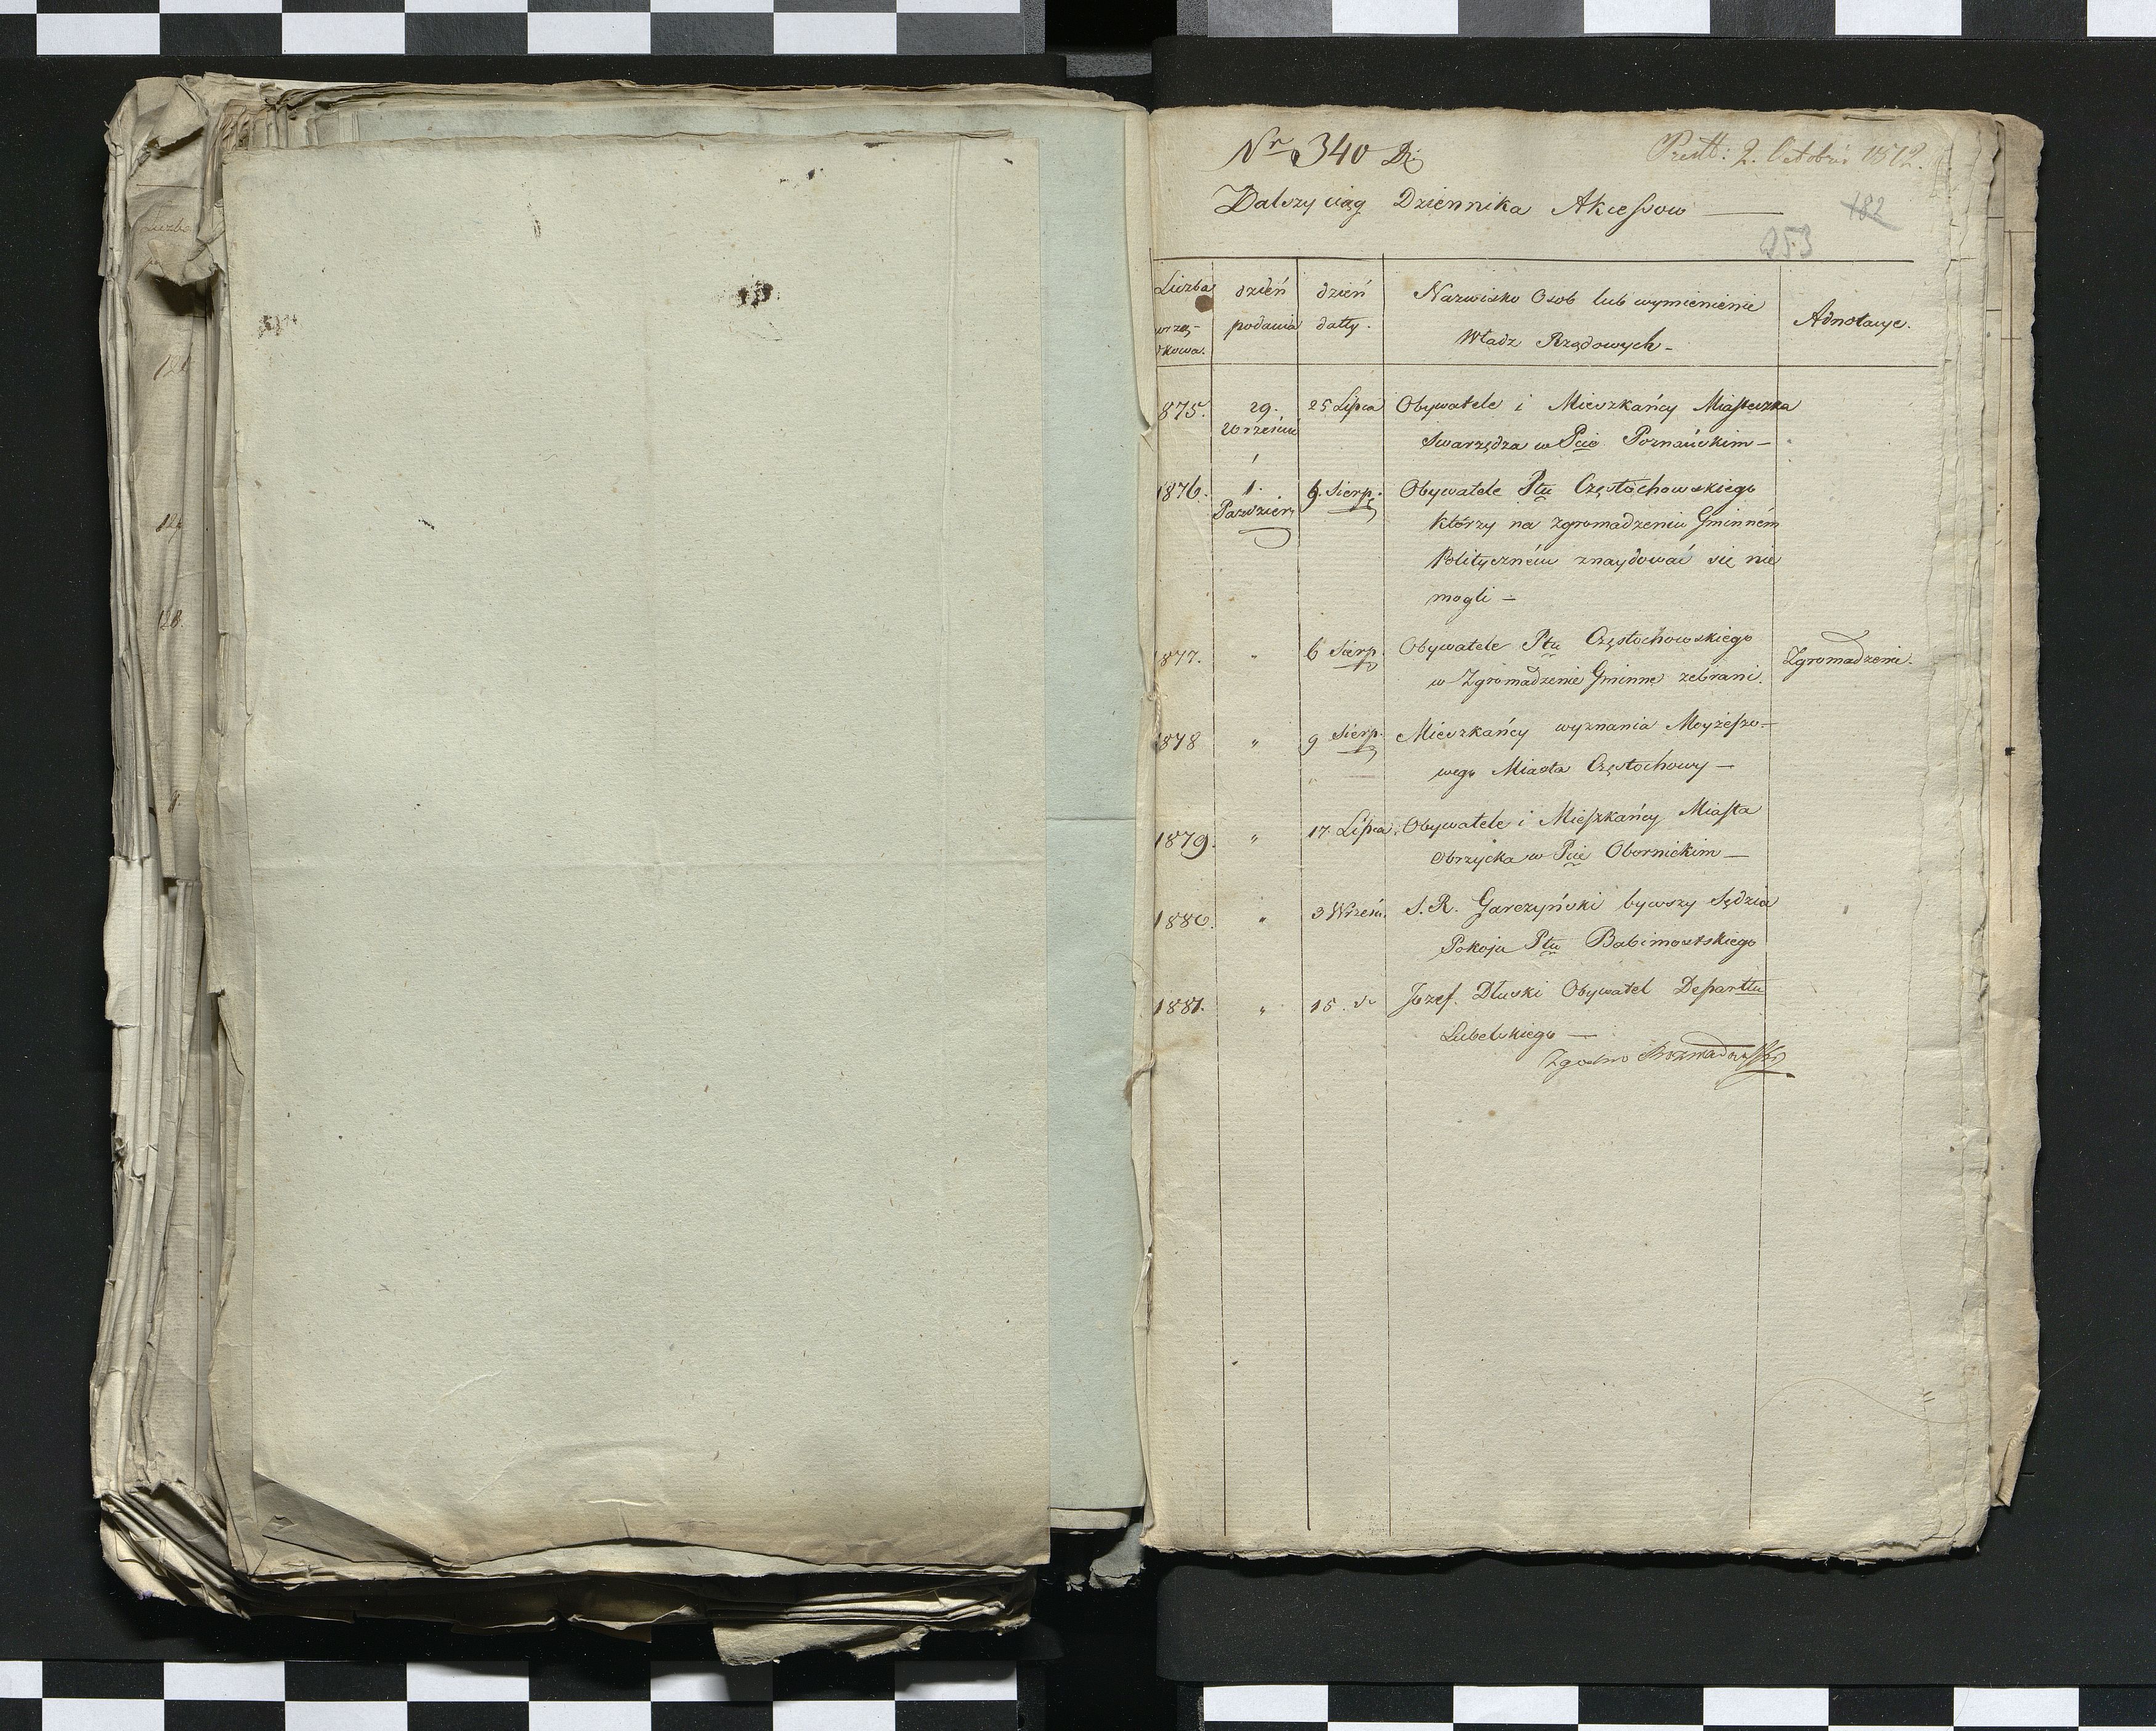 Liczba
121
127
128.
9.
Nr 340 Dz
Prestt: 2. Octobris 1812.
Dalszy ciąg Dziennika Akcessow —
182
253
Liczba dzień dzień Nazwisko Osob lub wymienienie
urzą- podania datty. Władz Rządowych - Adnotacye.
dkowa.
875. 29. 25 Lipca Obywatele i Mieszkańcy Miasteczka
Wrześniu Swarzędza w Pcie Poznańskim —
1876. 1. 6. Sierp. Obywatele Ptu Częstochowskiego
Pazdzier
którzy na zgromadzeniu Gminném
Politycznéw znaydować się nie
mogli —
1877. " 6 Sierp. Obywatele Ptu Częstochowskiego Zgromadzenie.
w Zgromadzenie Gminne zebrani.
1878 " 9 Sierp. Mieszkańcy wyznania Moyżeszo-
wego Miasta Częstochowy —
1879. " 17 Lipca. Obywatele i Mieszkańcy Miasta
Obrzycka w Pcie Obornickim —
1880. " 3 Wrześn. S. R. Garczyński bywszy Sędzia
Pokoju Ptu Babimostskiego
1881. " 15. d° Jozef Dłuski Obywatel Departtu
Lubelskiego —
Zgodno Rozwadowski